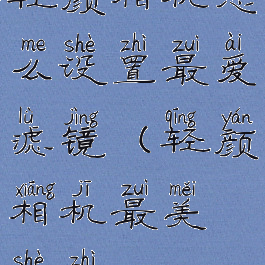 轻颜相机怎
me shè zhì zuì ài
么设置最爱
lǜ jìng qīng yán
滤镜（轻颜
xiāng jī zuì měi
相机最美
shè zhì